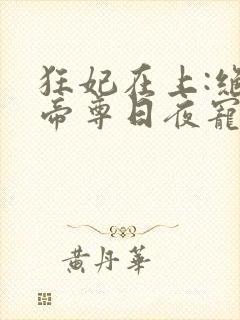 狂妃在上:绝
帝尊日夜寵
黄丹華